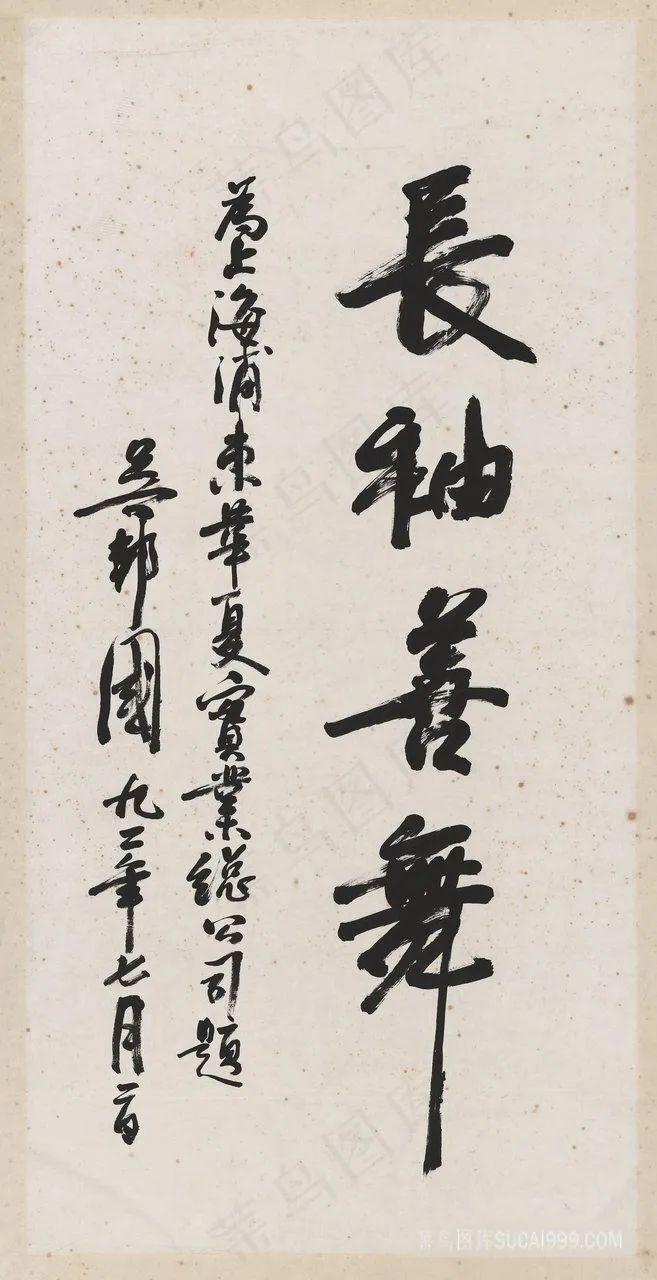 長袖善舞
為上海浦東華夏實業總公司題
吳邦國 九二年七月二日
菜鸟图库SUCAI999.COM
菜鸟图库